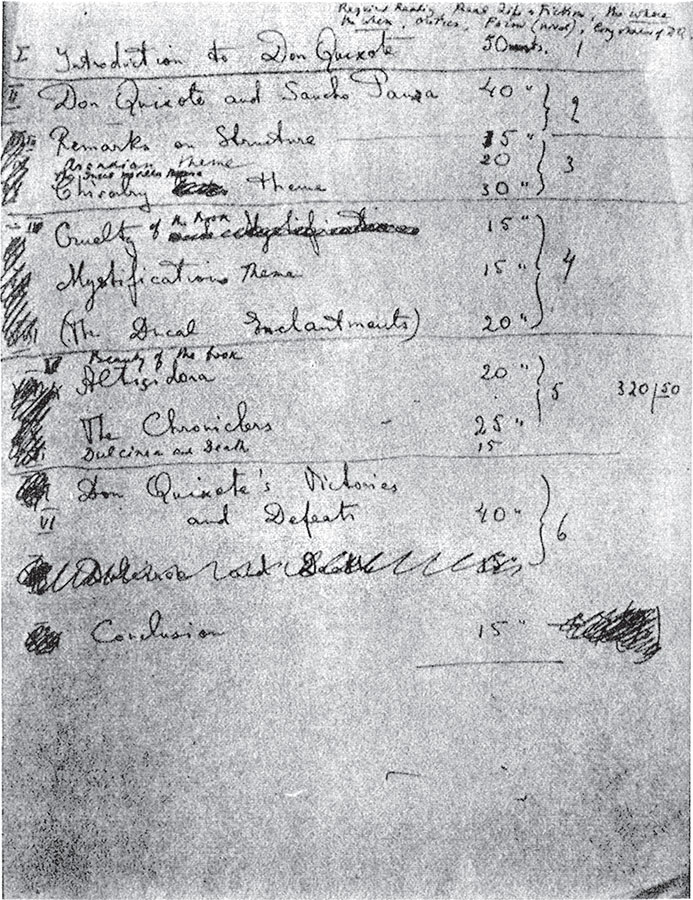 Required Reading, Real Life & Fiction, the where
the when, critics, Form (novel),
I Introduction to Don Quixote 50 1
II Don Quixote and Sancho Panza 40 " 2
Remarks on Structure 15 "
Arcadian theme 20 3
Chivalry theme 30 "
Cruelty of the book and Mystification 15 "
Mystifications Theme 15 " 4
(The Ducal Enchantments) 20 "
Beauty of the book
Altisidora 20 " 5 320/50
The Chroniclers 25 "
Dulcinea and Death 15
Don Quixote's Victories
VI and Defeats 40 " 6
Dulcinea and Death 15 "
Conclusion 15 "